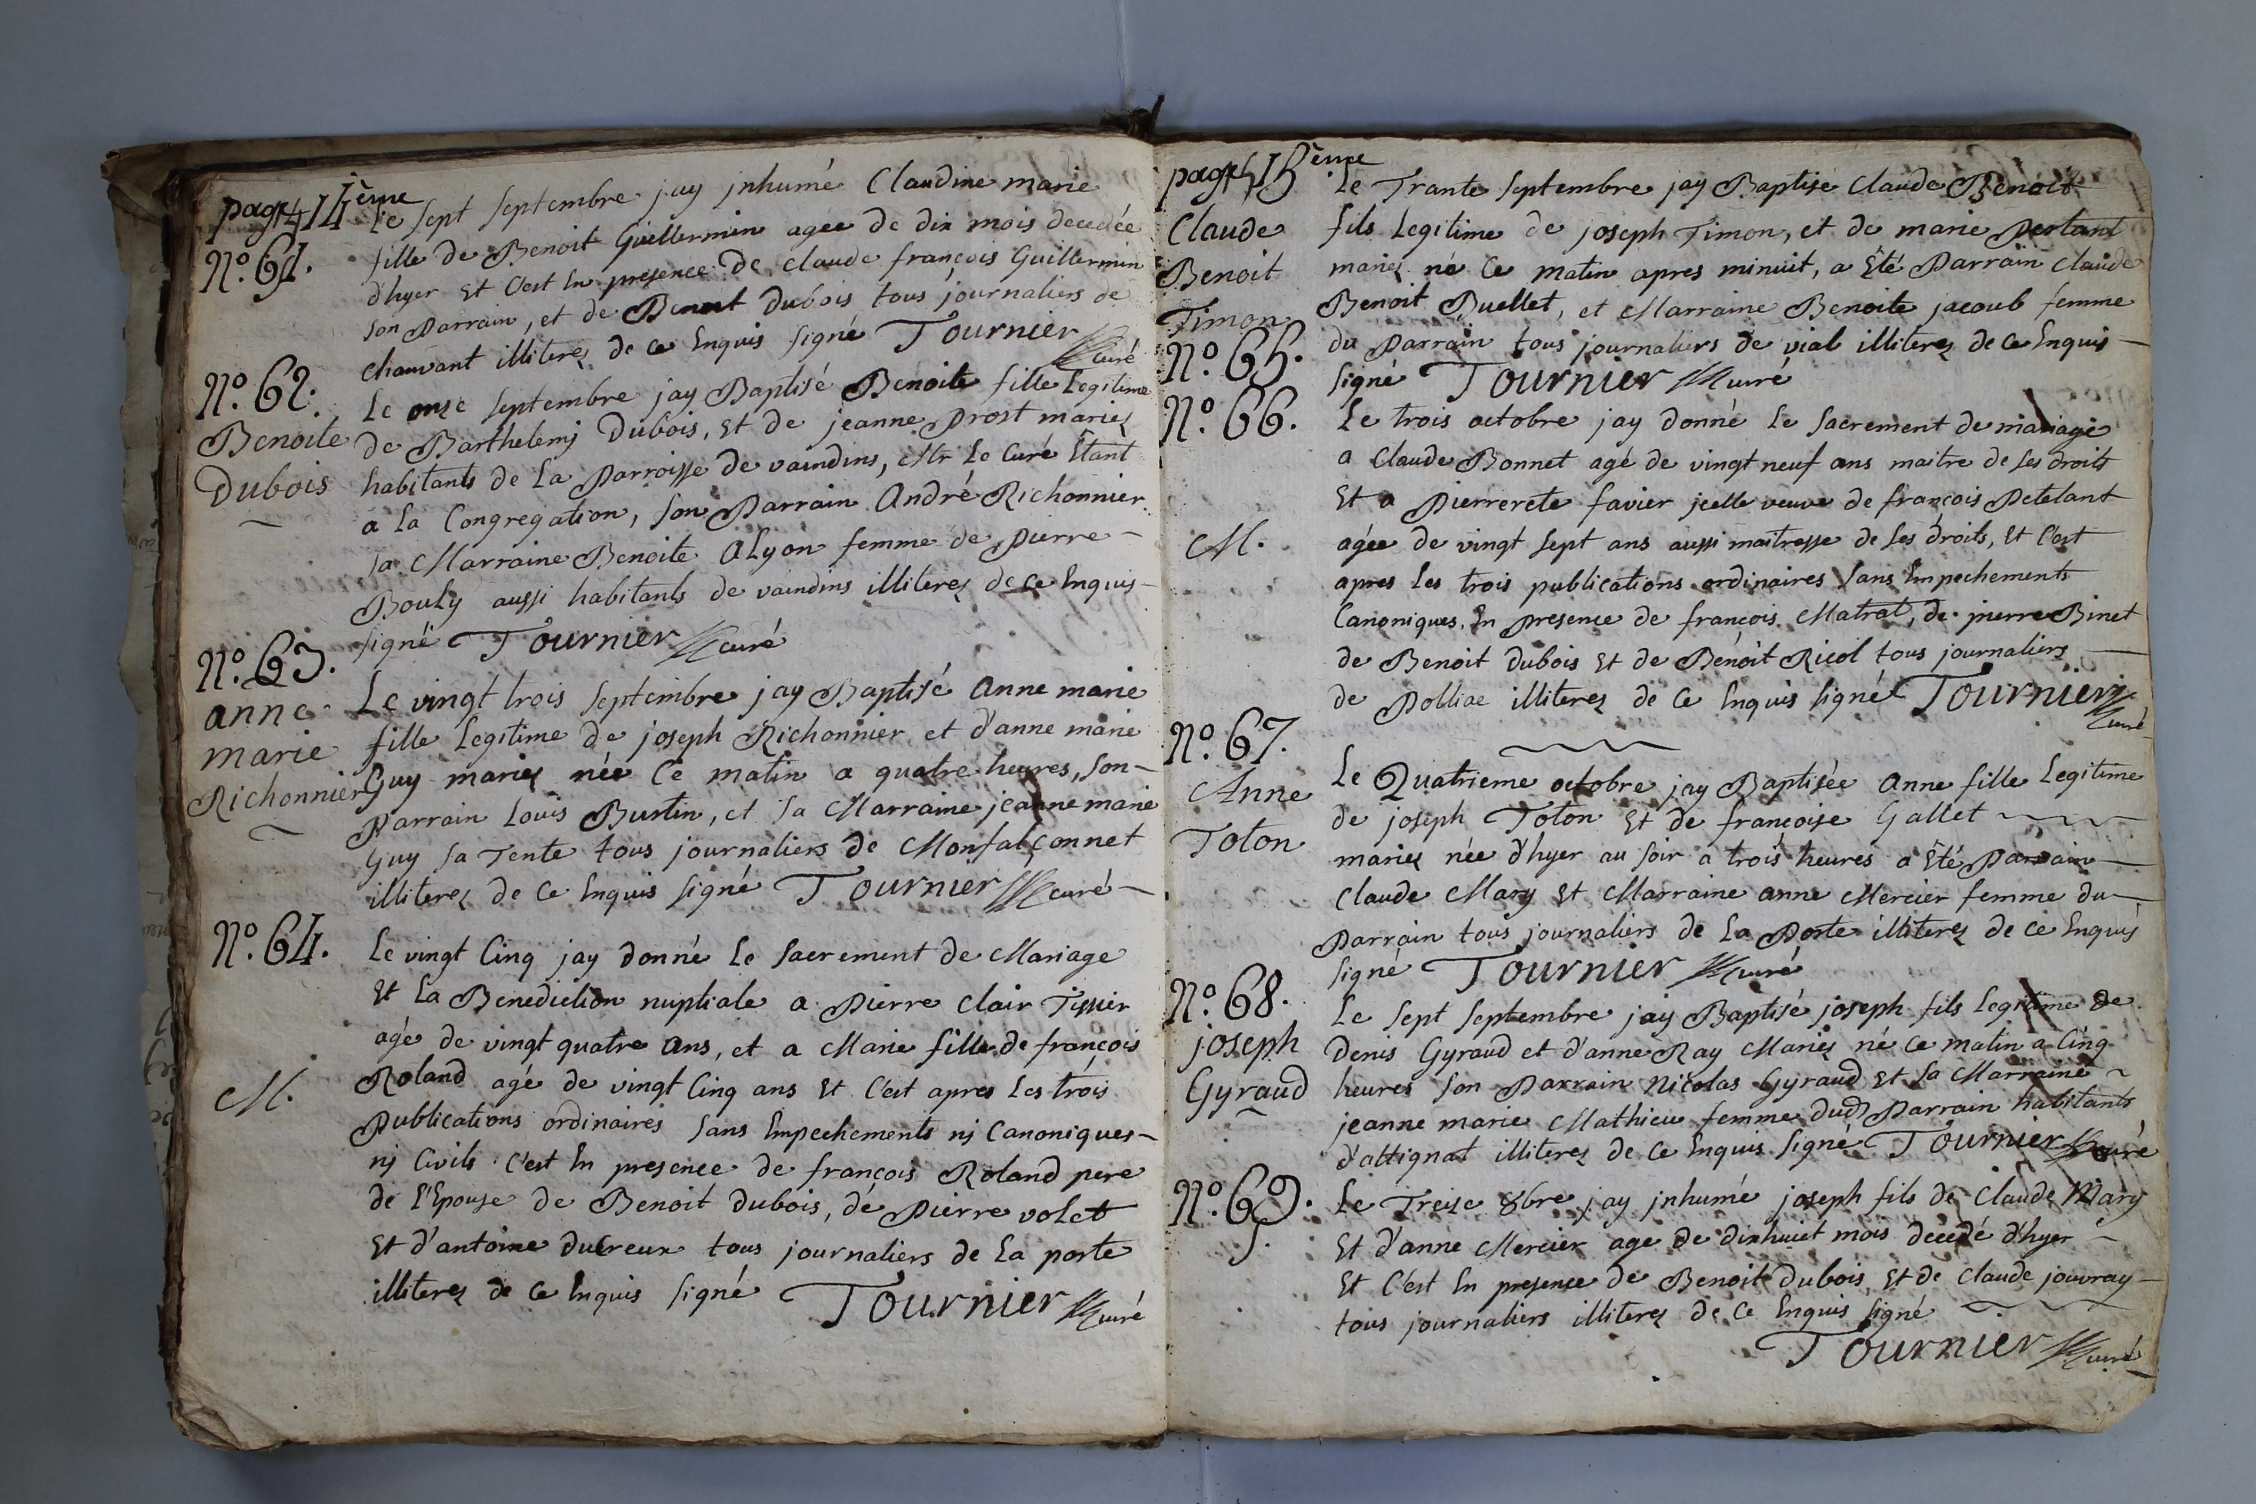 page 14ème
N.º 61.
Le sept septembre jay jnhumé Claudine marie
fille de Benoit Guillermin agee de dix mois decedée
d'hyer et C'est En presence de claude françois Guillermin
son Parrain, et de Benoit Dubois tous journaliers de
chauvant illiterez de ce Enquis signé Tournier curé
N.º 62.
Benoite
Dubois
Le onze septembre jay Baptisé Benoite fille Legitime
de Barthelemj Dubois, et de jeanne Prost mariez
habitants de La Parroisse de vaindins, Mr Le Curé Etant
a La Congregation, son Parrain André Richonnier
sa Marraine Benoite Alyon femme de pierre
Bouly aussi habitants de vaindins illiterez de ce Enquis
signé Tournier curé
N.º 63.
anne
marie
Richonnier
Le vingt trois septembre jay Baptisé Anne marie
fille Legitime de joseph Richonnier et d'anne marie
Guy mariez née Ce matin a quatre heures, son
Parrain Louis Burtin, et sa Marraine jeanne marie
Guy sa Tente tous journaliers de Monfalçonnet
illiterez de Ce Enquis signé Tournier curé
N.º 64.
M.
Le vingt Cinq jay donné Le Sacrement de Mariage
et La Benediction nuptiale a Pierre Clair Tissier
agé de vingt quatre ans, et a Marie fille de françois
Roland agé de vingt Cinq ans et C'est apres Les trois
Publications ordinaires sans Empechements nj Canoniques
nj Civils C'est En presence de françois Roland pere
de L'Epouse de Benoit Dubois, de Pierre volet
et d'antoine ducreux tous journaliers de La porte
illiterez de Ce Enquis signé Tournier curé
page 15ème
Claude
Benoit
Timon
N.º 65.
Le Trante septembre jay Baptisé Claude Benoit
fils Legitime de joseph Timon, et de marie Pertant
mariez né Ce matin apres minuit, a Eté Parrain claude
Benoit Buellet, et Marraine Benoite jacoub femme
du Parrain tous journaliers de vial illiterez de Ce Enquis
signé Tournier curé
N.º 66.
M.
Le trois octobre jay donné Le Sacrement de mariage
a Claude Bonnet agé de vingt neuf ans maitre de ses droits
et a Pierrerete favier jcelle veuve de françois Petelant
agée de vingt sept ans aussi maitresse de ses droits, et C'est
apres Les trois publications ordinaires sans Empechements
Canoniques, En presence de françois Matrat, de pierre Binet
de Benoit Dubois et de Benoit Ricol tous journaliers
de Polliac illiterez de Ce Enquis signé Tournier
curé
N.º 67.
Anne
Toton
Le Quatrieme octobre jay Baptisée Anne fille Legitime
de joseph Toton et de francoise Gallet
mariez née d'hyer au soir a trois heures a Eté Parrain
Claude Mary et Marraine anne Mercier femme du
Parrain tous journaliers de La Porte illiterez de Ce Enquis
signé Tournier curé
N.º 68.
joseph
Gyraud
Le sept septembre jay Baptisé joseph fils Legitime de
Denis Gyraud et d'anne Ray Mariez né Ce matin a Cinq
heures son Parrain Nicolas Gyraud et sa Marraine
jeanne marie Mathieu femme dud Parrain habitants
d'attignat illiterez de Ce Enquis signé Tournier curé
N.º 69.
Le Treize 8bre jay jnhumé joseph fils de Claude Mary
et d'anne Mercier agé de dixhuict mois decedé d'hyer
et C'est En presence de Benoit Dubois et de Claude jouvray
tous journaliers illiterez de Ce Enquis signé
Tournier curé